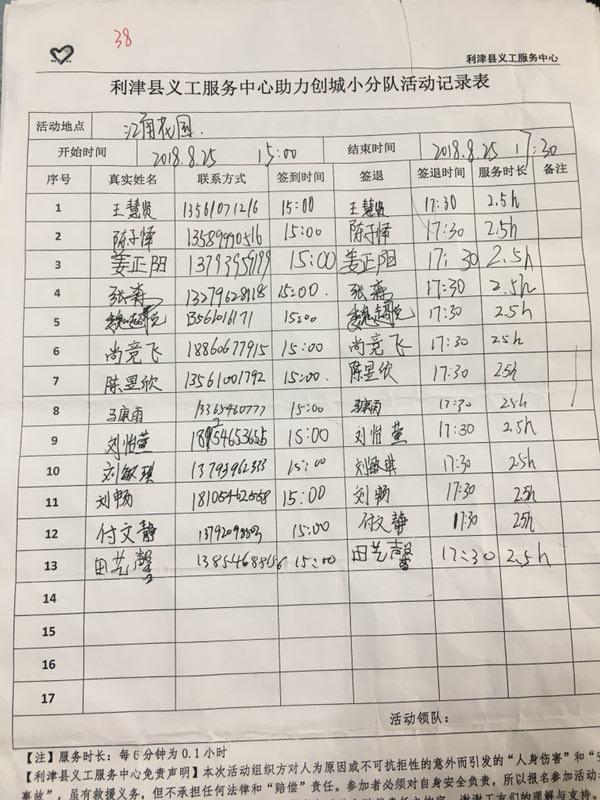 38
利津县义工服务中心
利津县义工服务中心助力创城小分队活动记录表
活动地点 花园.
开始时间 2018.8.25 15:00 结束时间 2018.8.25 17:30
序号 真实姓名 联系方式 签到时间 签退 签退时间 服务时长 备注
1 王慧贤 13561071216 15:00 王慧贤 17:30 2.5h
2 陈子怿 13589990516 15:00 陈子怿 17:30 2.5h
3 姜正阳 13793959199 15:00 姜正阳 17:30 2.5h
4 张森 13279628118 15:00. 张森 17:30 2.5h
5 15:00 17:30 2.5h
6 尚竞飞 18860677915 15:00 尚竞飞 17:30 2.5h
7 陈昱欣 13561001792 15:00. 陈昱欣 17:30 2.5h
8 马康雨 15:00 马康雨 17:30 2.5h
9 刘怡萱 15:00 刘怡萱 17:30 2.5h
10 刘敏琪 15:00 刘敏琪 17:30 2.5h
11 刘畅 15:00 刘畅 17:30 2.5h
12 付文静 15:00 付文静 17:30 2.5h
13 田艺馨 15:00 田艺馨 17:30 2.5h
14
15
16
17
活动领队：
【注】服务时长：每6分钟为0.1小时
【利津县义工服务中心免责声明】本次活动组织方对人为原因或不可抗拒性的意外而引发的“人身伤害”和“
事故”，虽有救援义务，但不承担任何法律和“赔偿”责任。参加者必须对自身安全负责，所以报名参加活动